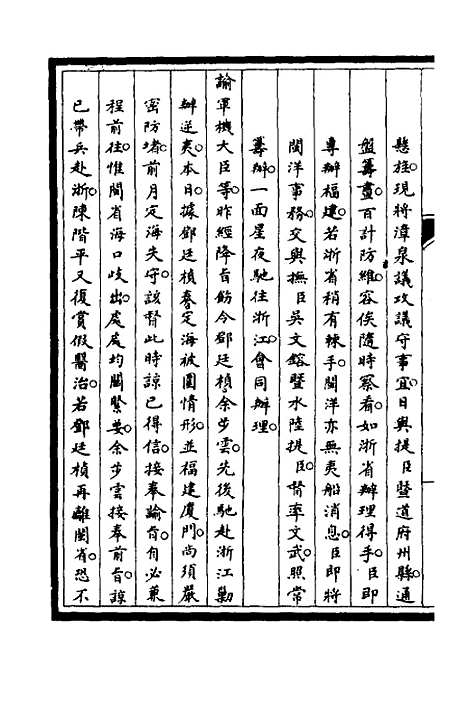 懸旌。現將漳泉議攻議守事宜。日與提臣暨道府州縣。通
盤籌畫。百計防維。容俟隨時察看。如浙省辦理得手。臣即
專辦福建。若浙省稍有棘手。閩洋亦無夷船消息。臣即將
閩洋事務。交與撫臣吳文鎔暨水陸提臣。督率文武。照常
籌辦。一面星夜馳往浙江。會同辦理。
諭軍機大臣等。昨經降旨飭令鄧廷楨余步雲。先後馳赴浙江勦
辦逆夷。本日據鄧廷楨奏定海被圍情形。並福建廈門。尚須嚴
密防堵。前月定海失守。該督此時諒已得信。接奉諭旨。自必兼
程前往。惟閩省海口歧出。處處均關緊要。余步雲接奉前旨。諒
已帶兵赴浙。陳階平又復賞假醫治。若鄧廷楨再離閩省。恐不